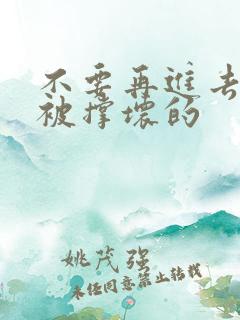 不要再進去
被撐壞的
姚茂強
未经同意禁止转载